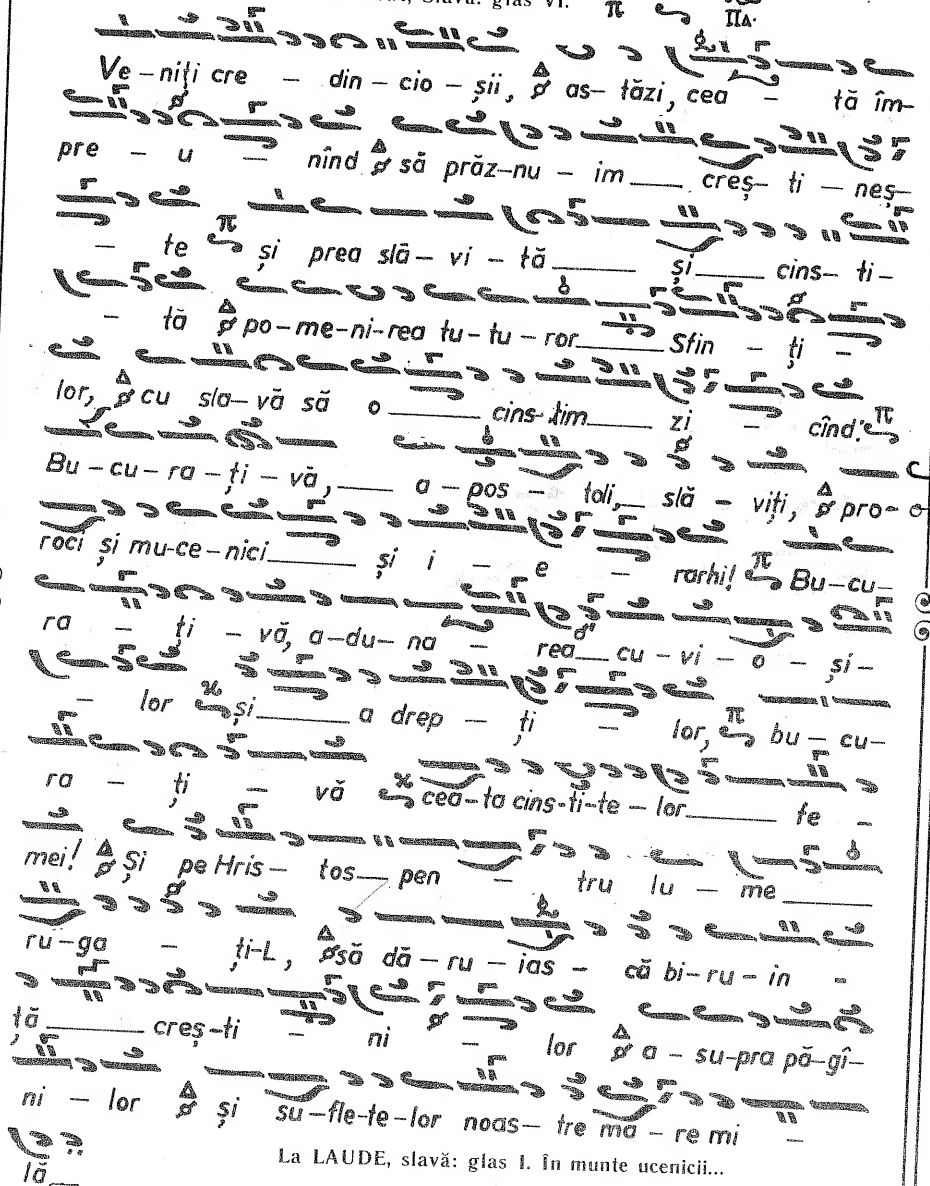 Slavă: glas VI.
Ve – niți cre – din – cio – șii, as – tăzi, cea – tă îm–
pre – u – nînd să prăz–nu – im ___ creș– ti – neș–
– te și prea slă – vi – tă ___ și ___ cins – ti –
– tă po–me–ni–rea tu–tu – ror ___ Sfin – ți –
lor, cu sla–vă să o ___ cins–tim ___ zi – cînd:
Bu – cu – ra – ți – vă, ___ a – pos – toli, ___ slă – viți, pro–
roci și mu–ce–nici ___ și i – e – rarhi! Bu–cu–
ra – ți – vă, a–du– na – rea ___ cu – vi – o – și–
– lor și ___ a drep – ți – lor, bu – cu–
ra – ți – vă cea–ta cins–ti–te – lor ___ fe –
mei! Și pe Hris – tos ___ pen – tru lu – me ___
ru–ga – ți–L, să dă – ru – ias – că bi–ru–in –
ță ___ creș–ti – ni – lor a – su–pra pă–gî–
ni – lor și su–fle–te–lor noas– tre ma – re mi –
lă ___
La LAUDE, slavă: glas I. În munte ucenicii...